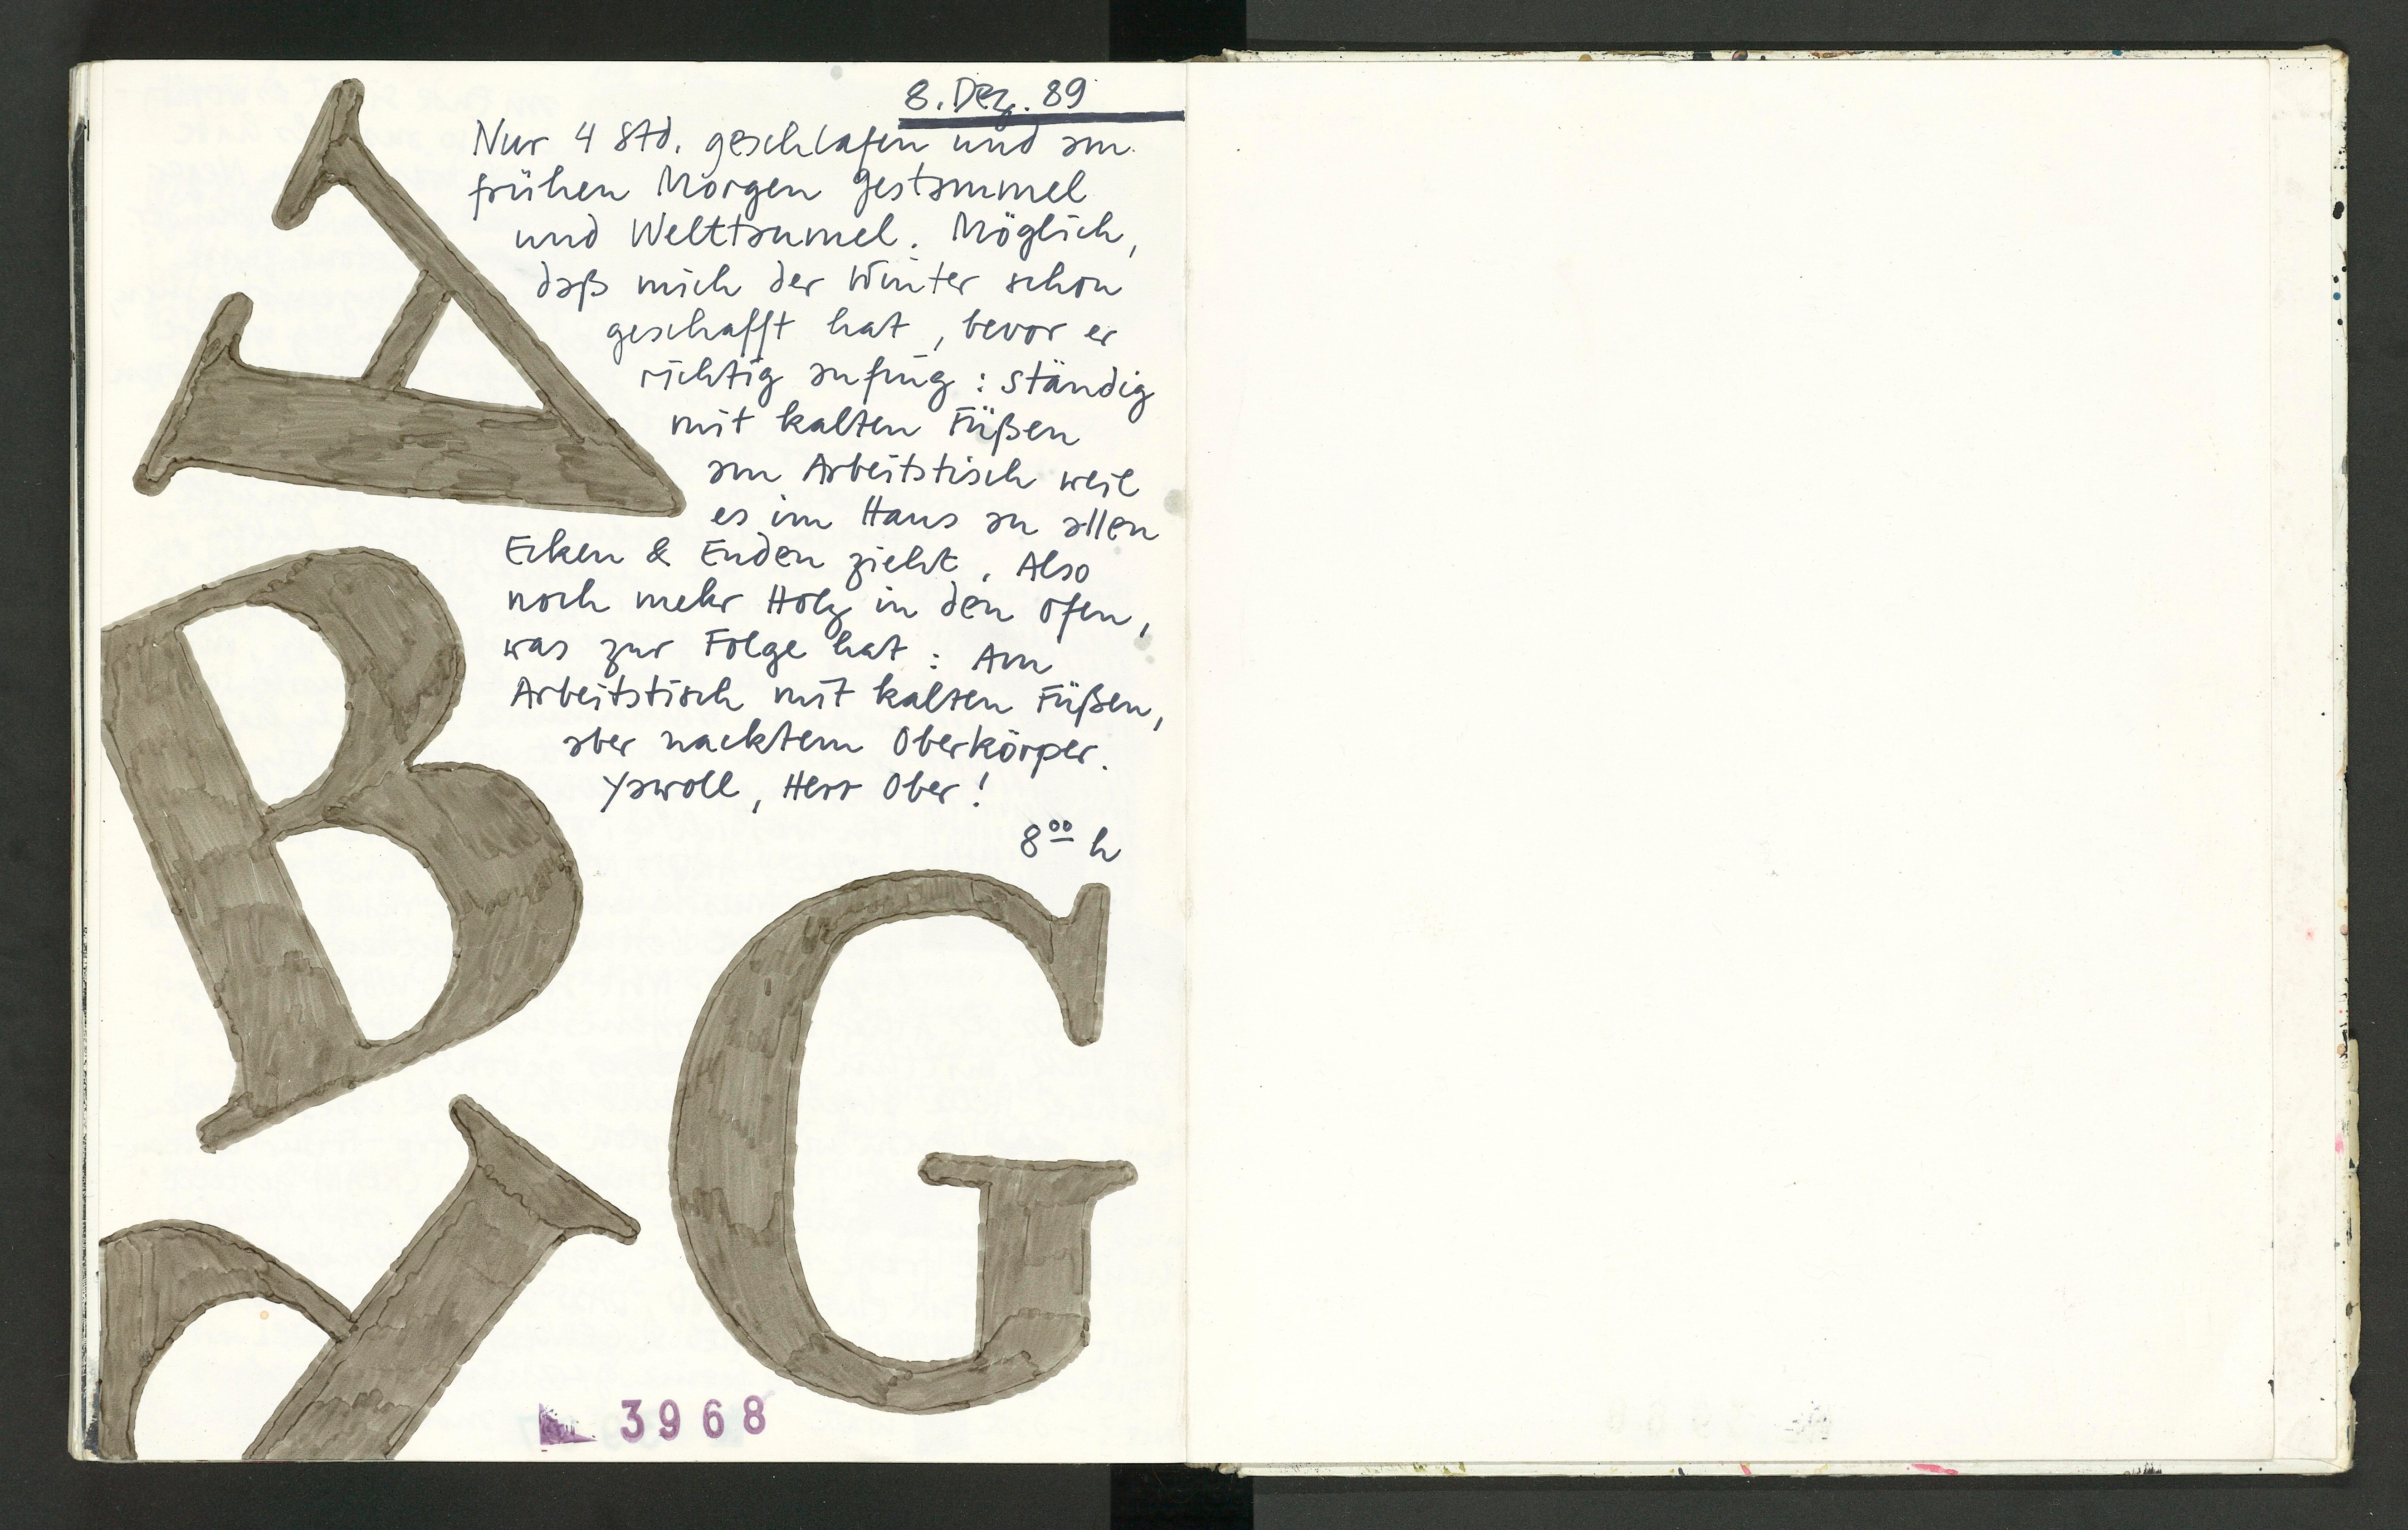 8. Dez. 89
Nur 4 Std. geschlafen und am
frühen Morgen Gestammel
und Welttaumel. Möglich,
daß mich der Winter schon
geschafft hat, bevor er
richtig anfing: ständig
mit kalten Füßen
am Arbeitstisch weil
es im Haus an allen
Ecken & Enden zieht. Also
noch mehr Holz in den Ofen,
was zur Folge hat: Am
Arbeitstisch mit kalten Füßen,
aber nacktem Oberkörper.
Yawoll, Herr Ober!
8⁰⁰ h
A
B
G
3968